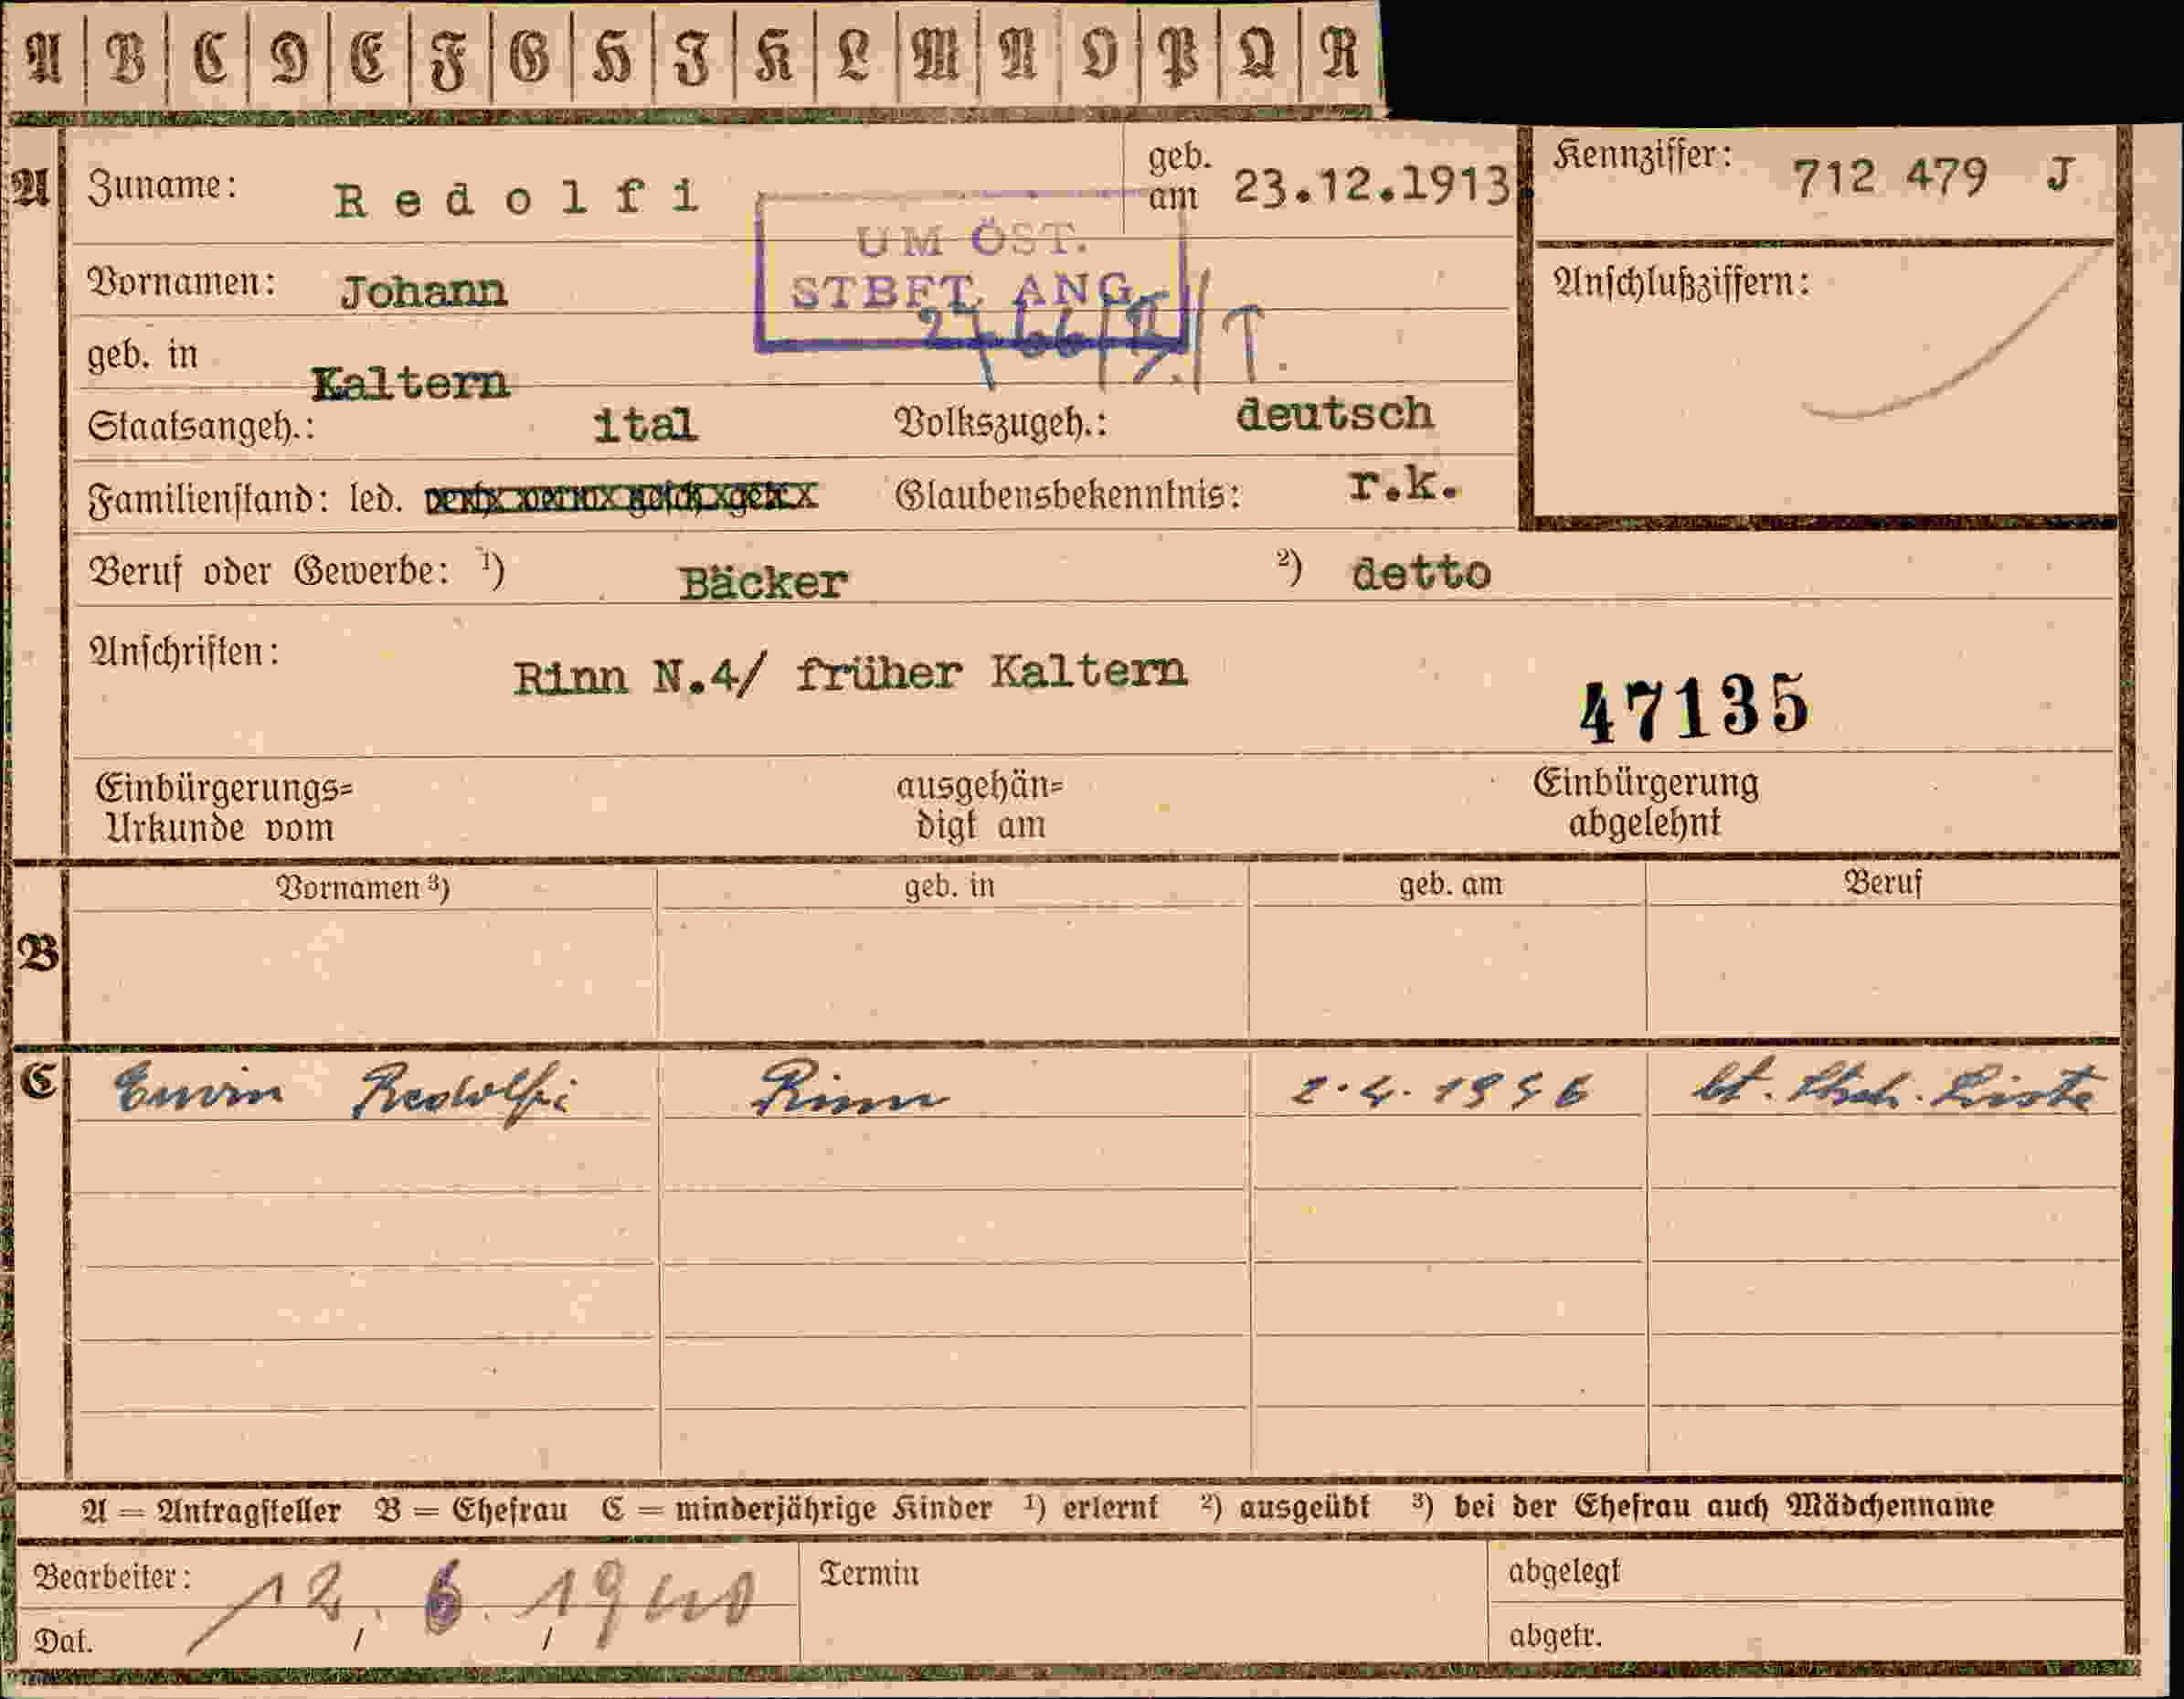 A B C D E F G H I K L M N O P Q R
A Zuname: Redolfi geb. am 23.12.1913 Kennziffer: 712 479 J
UM ÖST. STBFT. ANG.
Vornamen: Johann Anschlußziffern:
geb. in Kaltern
Staatsangeh.: ital Volkszugeh.: deutsch
Familienstand: led. Glaubensbekenntnis: r.k.
Beruf oder Gewerbe: 1) Bäcker 2) detto
Anschriften: Rinn N.4/ früher Kaltern
47135
Einbürgerungs= Urkunde vom ausgehän= digt am Einbürgerung abgelehnt
Vornamen 3) geb. in geb. am Beruf
B
C Erwin Redolfi Rinn 2.4.1956 lt. Liste
A = Antragsteller B = Ehefrau C = minderjährige Kinder 1) erlernt 2) ausgeübt 3) bei der Ehefrau auch Mädchenname
Bearbeiter: 12. 6. 1940 Termin abgelegt
Dat. abgetr.